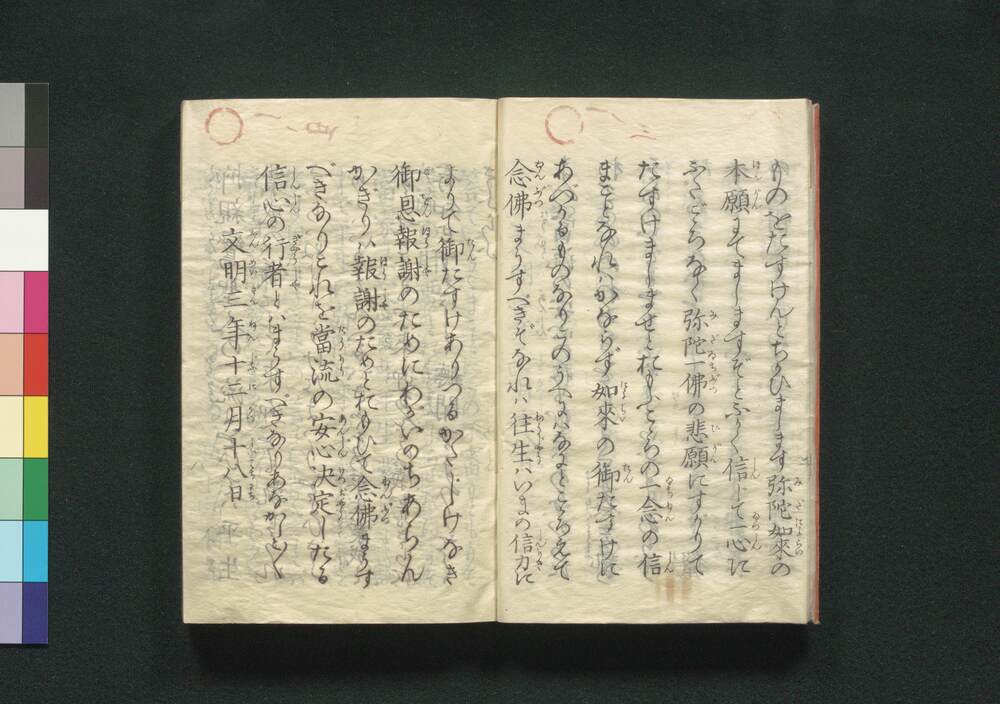 ものをたすけんとちかひまします弥陀如來の
本願にてましますぞとふかく信じて一心に
ふたごころなく弥陀一佛の悲願にすがりて
たすけましませとおもふこころの一念の信
まことなれはかならず如來の御たすけに
あづかるものなりこのうへにはなにとこころえて
念佛まうすべきぞなれは往生はいまの信力に
よりて御たすけありつるかたじけなき
御恩報謝のためにわがいのちあらん
かぎりは報謝のためとおもひて念佛まうす
べきなりこれを當流の安心决定したる
信心の行者とはまうすべきなりあなかしこ〱
文明三年十二月十八日